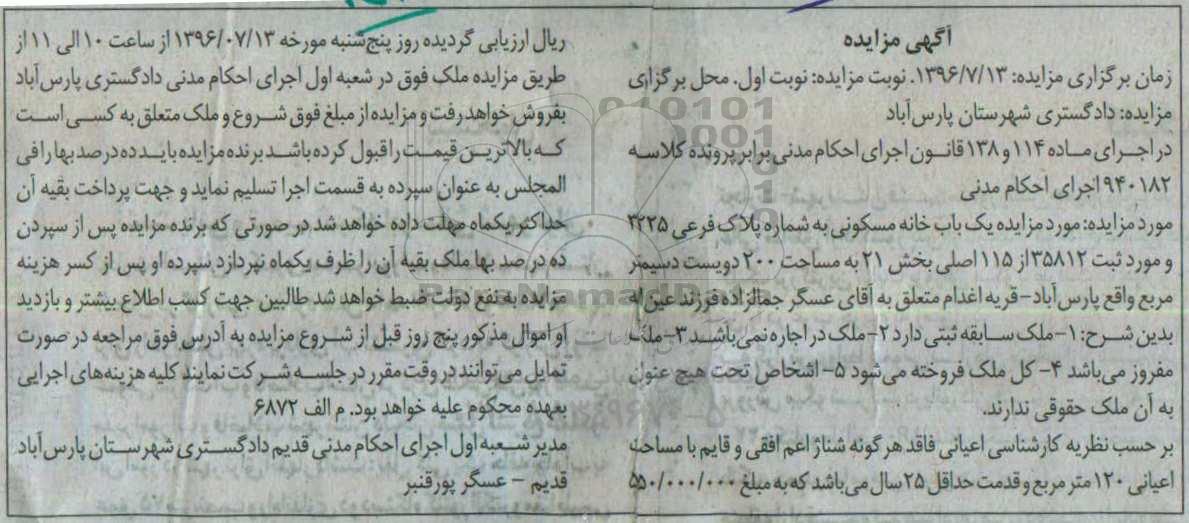 آگهی مزایده
زمان برگزاری مزایده: ۱۳۹۶/۷/۱۳. نوبت مزایده: نوبت اول. محل برگزاری
مزایده: دادگستری شهرستان پارس‌آباد
در اجـرای مـاده ۱۱۴ و ۱۳۸ قانـون اجرای احکام مدنی برابر پرونده کلاسه
۹۴۰۱۸۲ اجرای احکام مدنی
مورد مزایده: مورد مزایده یک باب خانه مسکونی به شماره پلاک فرعی ۳۲۲۵
و مورد ثبت ۳۵۸۱۲ از ۱۱۵ اصلی بخش ۲۱ به مساحت ۲۰۰ دویست دسیمتر
مربع واقع پارس‌آباد- قریه اغدام متعلق به آقای عسگر جمالزاده فرزند عین‌اله
بدین شـرح: ۱- ملک سـابقه ثبتی دارد ۲- ملک در اجاره نمی‌باشـد ۳- ملک
مفروز می‌باشد ۴- کل ملک فروخته می‌شود ۵- اشخاص تحت هیچ عنوان
به آن ملک حقوقی ندارند.
بر حسب نظریه کارشناسی اعیانی فاقد هرگونه شناژ اعم افقی و قایم با مساحت
اعیانی ۱۲۰ متر مربع و قدمت حداقل ۲۵ سال می‌باشد که به مبلغ ۵۵۰/۰۰۰/۰۰۰
ریال ارزیابی گردیده روز پنج‌شنبه مورخه ۱۳۹۶/۰۷/۱۳ از ساعت ۱۰ الی ۱۱ از
طریق مزایده ملک فوق در شعبه اول اجرای احکام مدنی دادگستری پارس‌آباد
بفروش خواهد رفت و مزایده از مبلغ فوق شـروع و ملک متعلق به کسـی است
کـه بالاتریـن قیمـت را قبول کرده باشـد برنده مزایده بایـد ده درصد بها را فی
المجلس به عنوان سپرده به قسمت اجرا تسلیم نماید و جهت پرداخت بقیه آن
حداکثر یکماه مهلت داده خواهد شد در صورتی که برنده مزایده پس از سپردن
ده در صد بها ملک بقیه آن را ظرف یکماه نپردازد سپرده او پس از کسر هزینه
مزایده به نفع دولت ضبط خواهد شد طالبین جهت کسب اطلاع بیشتر و بازدید
او اموال مذکور پنج روز قبل از شـروع مزایده به آدرس فوق مراجعه در صورت
تمایل می‌توانند در وقت مقرر در جلسـه شـرکت نمایند کلیه هزینه‌های اجرایی
بعهده محکوم علیه خواهد بود. م الف ۶۸۷۲
مدیر شـعبه اول اجرای احکام مدنی قدیم دادگسـتری شهرسـتان پارس‌آباد
قدیم - عسگر پورقنبر
ParsNamadData